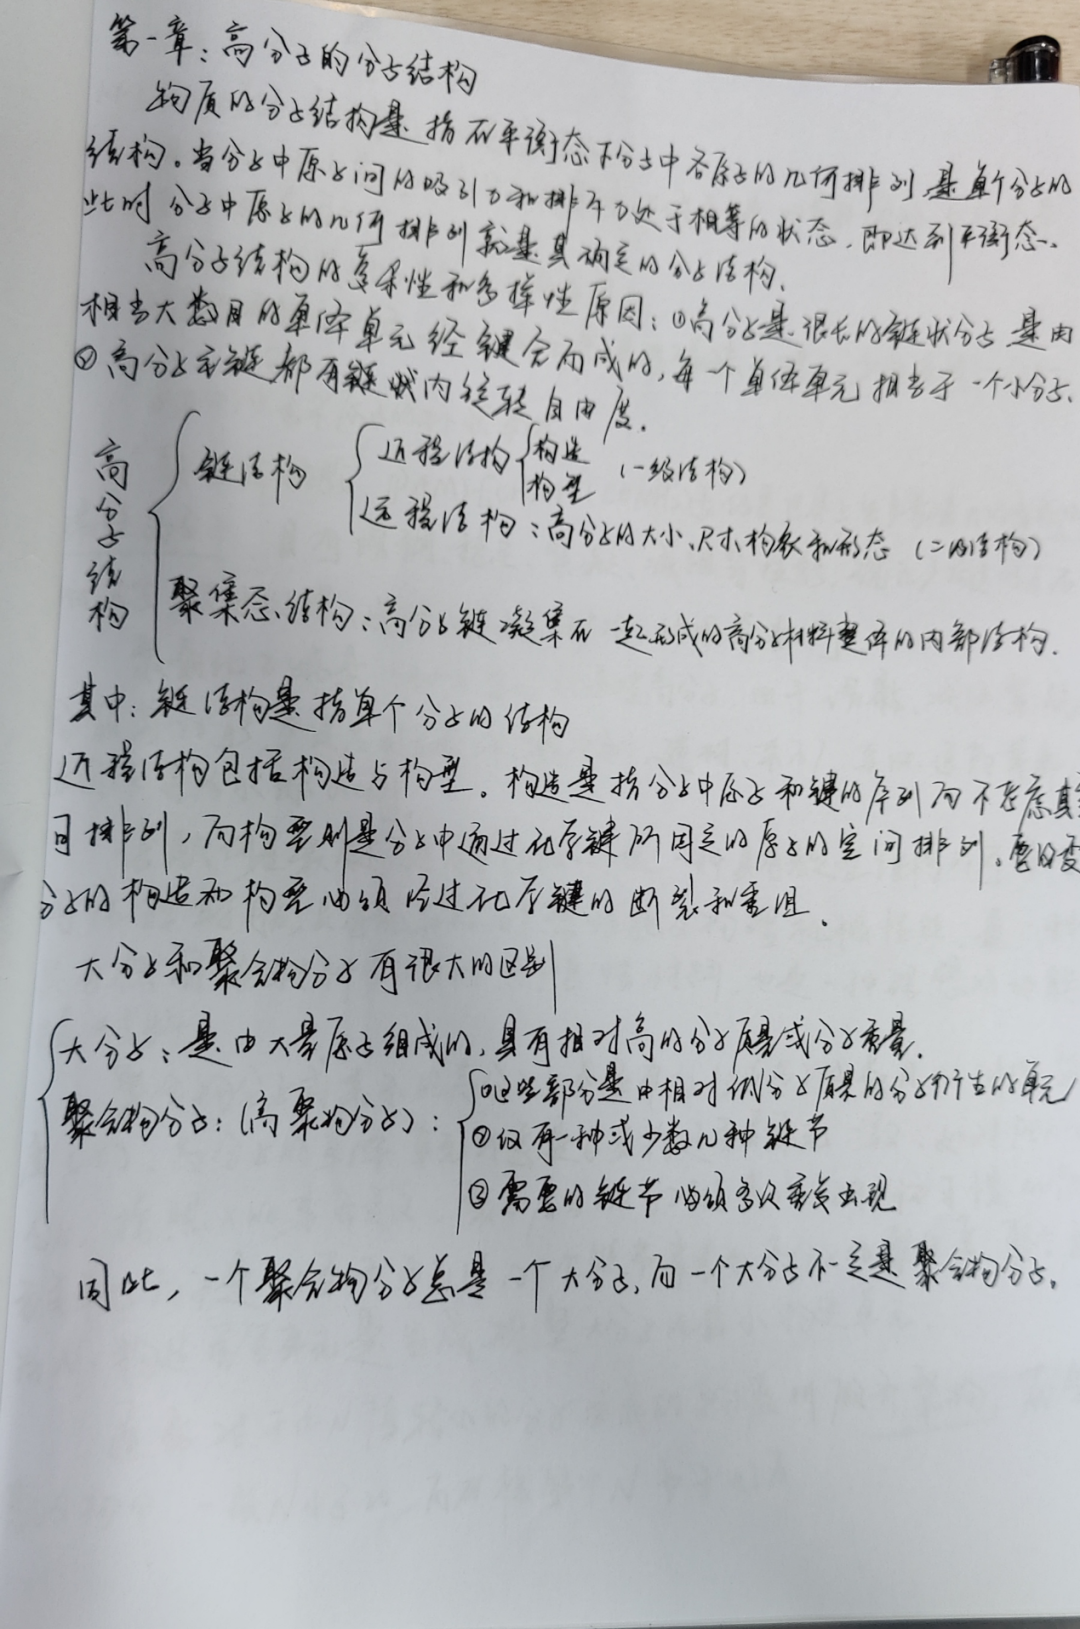 第一章：高分子的分子结构
物质的分子结构是指在平衡态下分子中各原子的几何排列，是单个分子的
结构。当分子中原子间的吸引力和排斥力处于相等的状态，即达到平衡态。
此时分子中原子的几何排列就是其确定的分子结构。
高分子结构的复杂性和多样性原因：①高分子是很长的链状分子，是由
相当大数目的单体单元经键合而成的，每一个单体单元相当于一个小分子。
②高分子主链都有链状内旋转自由度。
高分子结构
链结构
近程结构 构造 构型 （一级结构）
远程结构：高分子的大小、尺寸、构象和形态（二级结构）
聚集态结构：高分子链凝集在一起形成的高分子材料整体的内部结构。
其中：链结构是指单个分子的结构
近程结构包括构造与构型。构造是指分子中原子和键的序列而不考虑其
间排列，而构型则是分子中通过化学键所固定的原子的空间排列。要改变
分子的构造和构型必须经过化学键的断裂和重组。
大分子和聚合物分子有很大的区别
大分子：是由大量原子组成的，具有相对高的分子质量或分子重量。
聚合物分子：（高聚物分子）：
①这些部分是由相对低分子质量的分子衍生的单元
②仅有一种或少数几种链节
③需要的链节必须多次重复出现
因此，一个聚合物分子总是一个大分子，而一个大分子不一定是聚合物分子。